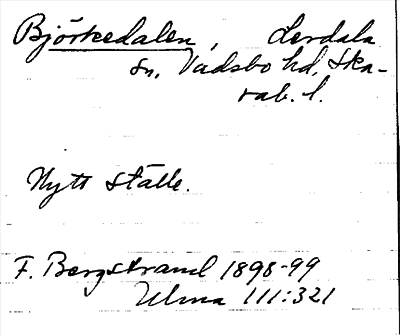 Björkedalen, Lerdala
sn, Vadsbo hd, Ska-
rab. l.
Nytt ställe.
F. Bergstrand 1898-99
Ulma 111:321